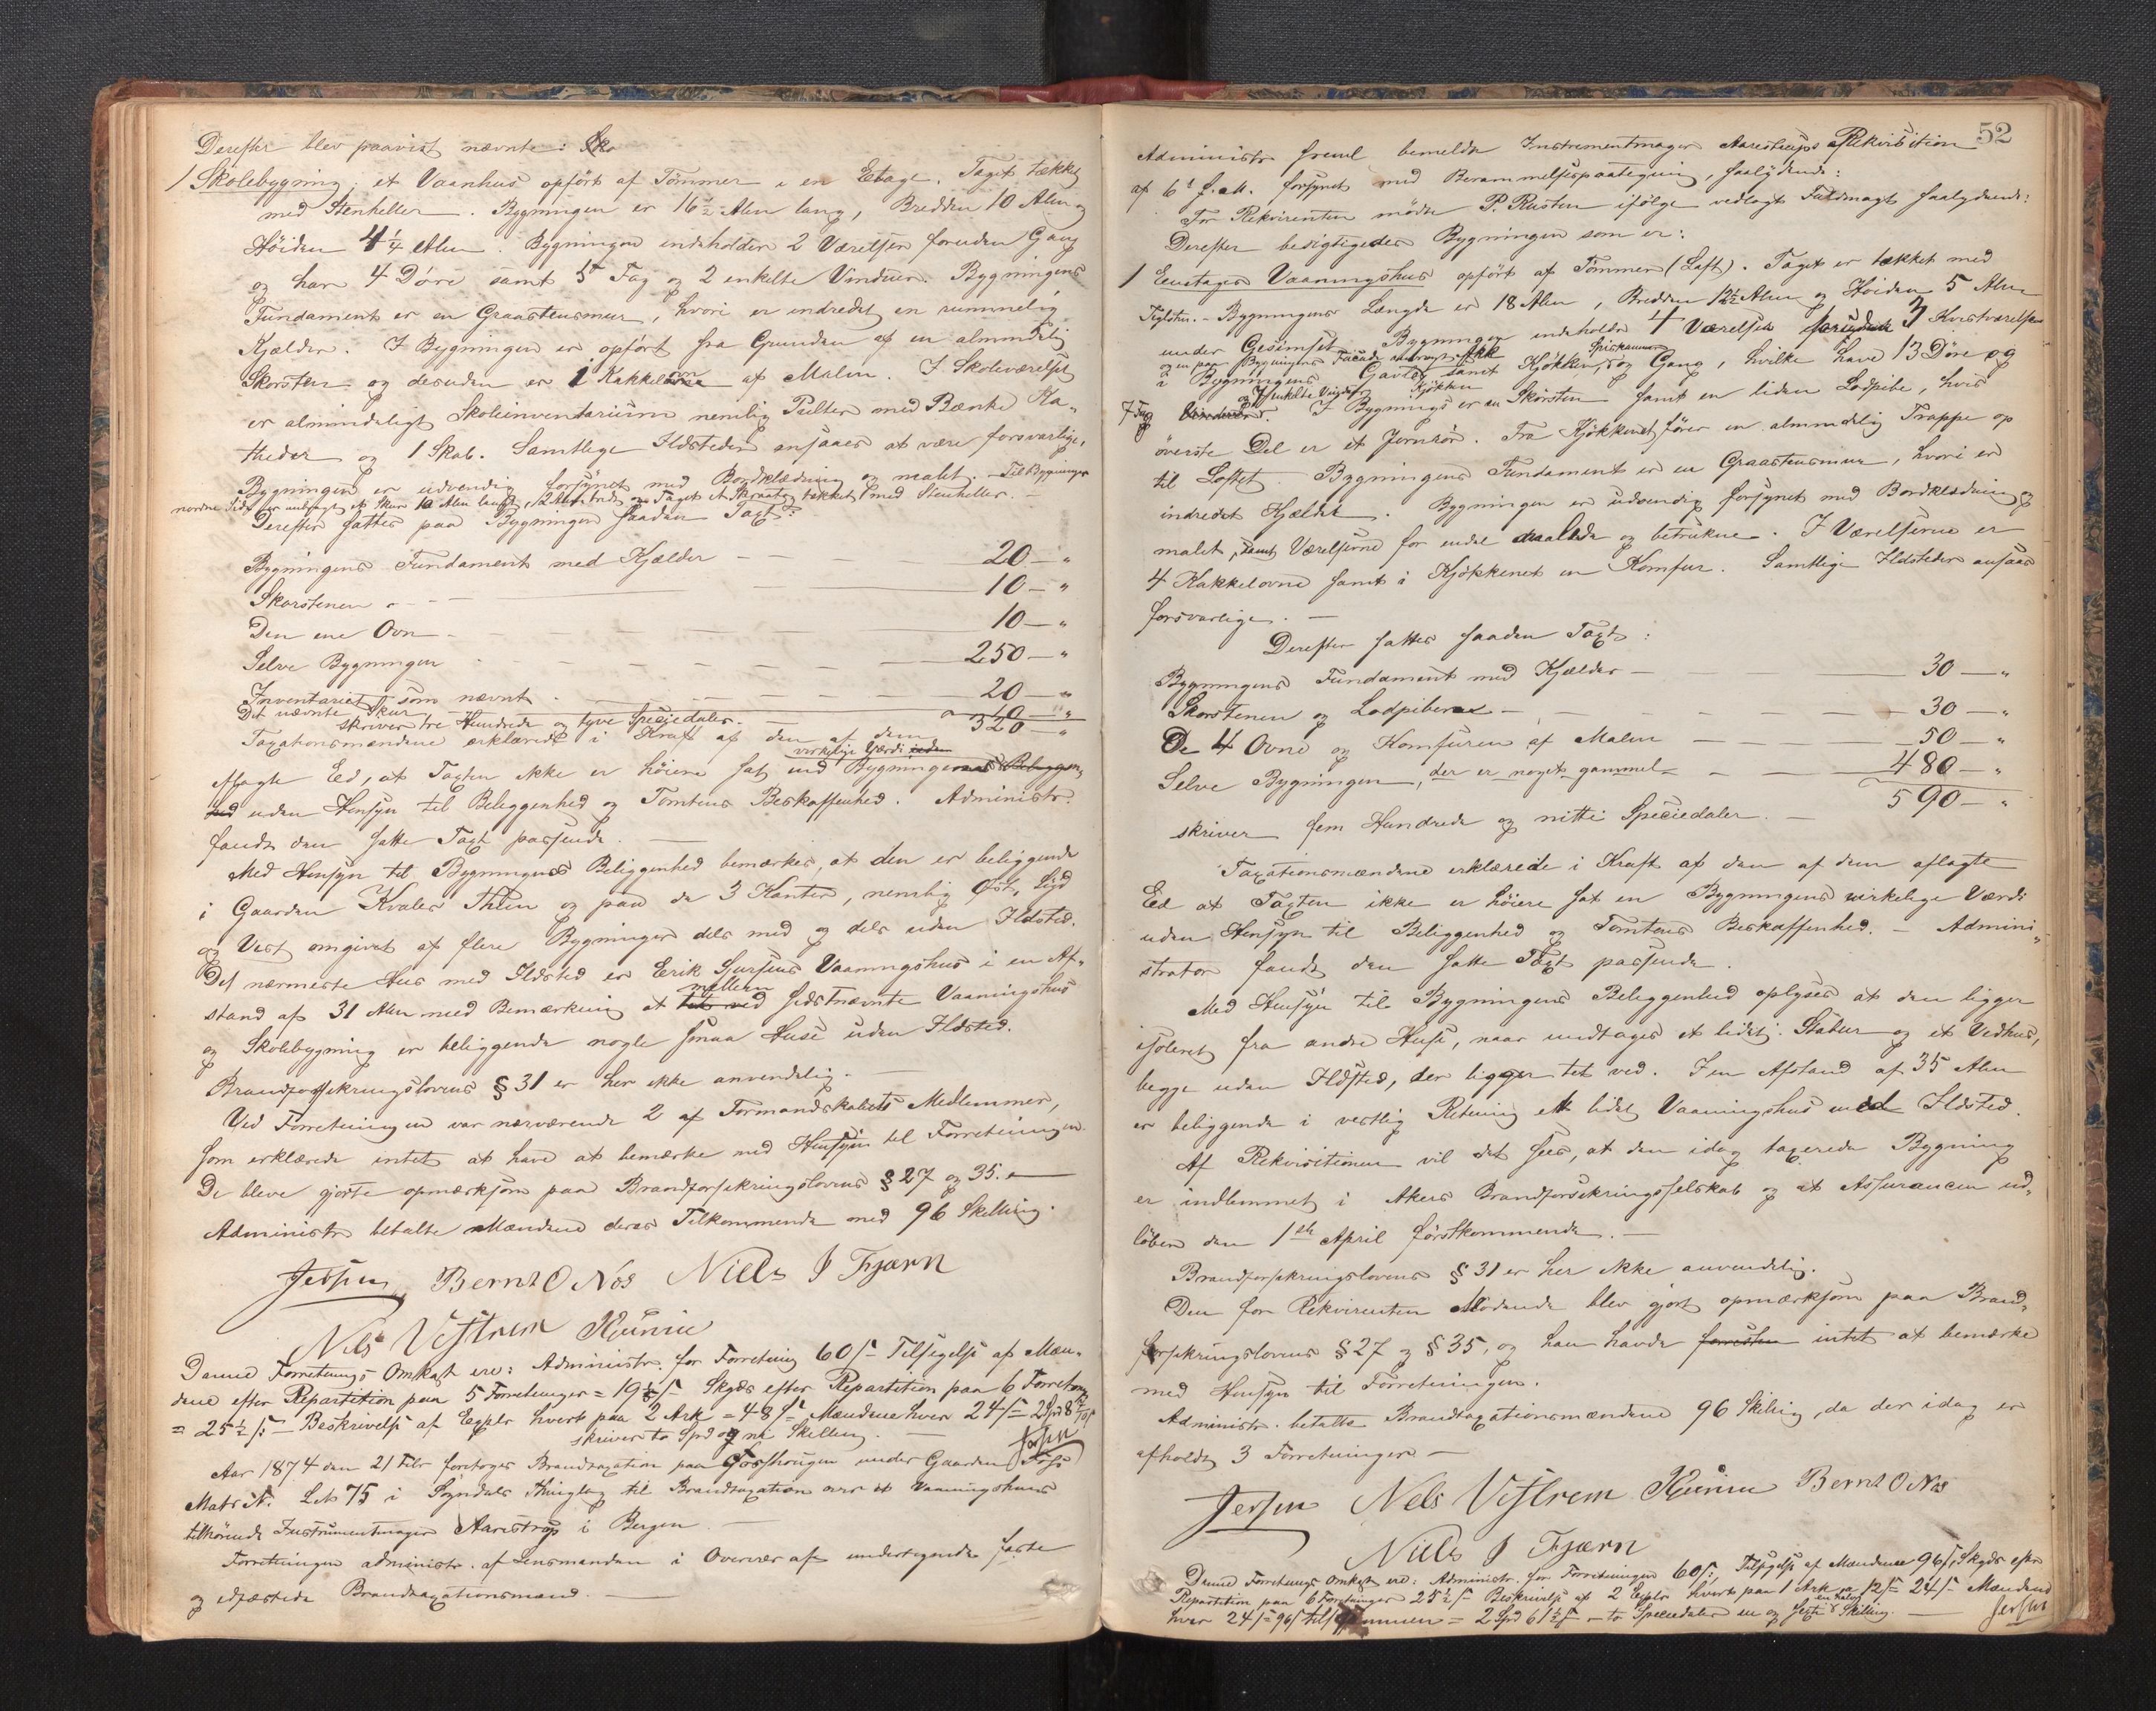 Derefter blev paavist nævnte:
1 Skolebygning, et Vaanhus opført af Tømmer i en Etage. Taget tækket
med Stenheller. Bygningen er 16½ Alen lang, Bredden 10 Alen og
Höiden 4¼ Alen. Bygningen indeholder 2 Værelser foruden Gang
og har 4 Døre samt 5 Fag og 2 enkelte Vinduer. Bygningens
Fundament er en Graastensmur, hvori er indredet en rummelig
Kjælder. I Bygningen er opført fra Grunden af en almindelig
Skorsten og desuden er 1 Kakkelovn af Malm. I Skoleværelset
er almindeligt Skoleinventarium nemlig Pulter med Bænke Ka-
theder og 1 Skab. Samtlege Ildsteder ansaaes at være forsvarlige.
Bygningen er udvendig forsynet med Bordklædning og malet. – Til Bygningens
nordre Side er anbragt et Skur 10 Alen langt, 2 Alen bredt og Taget et Skraatag tækket med Stenheller. –
Derefter sattes paa Bygningen saadan Taxt:
Bygningens Fundament med Kjælder — 20 – "
Skorstenen — 10 – "
Den ene Ovn — 10 – "
Selve Bygningen — 250 – "
Inventariet som nævnt — 20 – "
Det nævnte Skur — 10 – "
skriver tre Hundrede og tyve Speciedaler. — 320 – "
Taxationsmændene erklærede i Kraft af den af dem
aflagte Ed, at Taxten ikke er höiere sat end Bygningens virkelige Værdi
uden Hensyn til Beliggenhed og Tomtens Beskaffenhed. Administr.
fandt den satte Taxt passende. —
Med Hensyn til Bygningens Beliggenhed bemærkes, at den er beliggende
i Gaarden Kvales Thun og paa de 3 Kanter, nemlig Øst, Syd
og Vest omgivet af flere Bygninger dels med og dels uden Ildsted.
Det nærmeste Hus med Ildsted er Erik Sjursens Vaaningshus i en Af-
stand af 31 Alen med Bemærkning at mellem sidstnævnte Vaaningshus
og Skolebygning er beliggende nogle smaa Huse uden Ildsted.
Brandforsikringslovens § 31 er her ikke anvendelig. —
Ved Forretningen var nærværende 2 af Formandskabets Medlemmer,
som erklærede intet at have at bemærke med Hensyn til Forretningen.
De bleve gjorte opmærksom paa Brandforsikringslovens § 27 og 35. —
Administr. betalte Mændene deres Tilkommende med 96 Skilling.
Jersin Bernt O Nös Niels J Fjærn
Nels Vestrem
Denne Forretnings Omkost. ere: Administr. for Forretning 60 s – Tilsigelse af Mæn-
dene efter Repartition paa 5 Forretninger = 19⅕ s – Skyds efter Repartition paa 6 Forretn.
= 25½ s: – Beskrivelse af Expl. hvert paa 2 Ark = 48 s – Mændene hver 24 s =
skriver to Spd og Skilling. — Jersin
Aar 1874 den 21 Febr. foretoges Brandtaxation paa Fosshougen under Gaarden Foss
Matr. N. Lb. 75 i Sogndals Thinglag til Brandtaxation over et Vaaningshuus
tilhörende Instrumentmager Aarestrup i Bergen. —
Forretningen administr. af Lensmanden i Overvær af undertegnede faste
og edfæstede Brandtaxationsmænd. —
52
Administr. freml. bemeldte Instrumentmager Aarestrups Rekvisition
af 6t f. M. forsynet med Berammelsespaategning, saalydende:
For Rekvirenten mødte P. Rusten ifølge vedlagt Fuldmagt saalydende:
Derefter besigtigedes Bygningen som er:
1 Eenetages Vaaningshus opført af Tømmer (Laft). Taget er tækket med
Teglsten. – Bygningens Længde er 18 Alen, Bredden 12½ Alen og Höiden 5 Alen
under Gesimset. Bygningen indeholder 4 Værelser foruden 3 Kvistværelser
i Bygningens Gavle samt Kjökken, Spiskammer og Gang, hvilke have 13 Døre og
7 Fag og enkelte Vinduer. I Bygnings Kjökken er en Skorsten samt en liden Lodpibe, hvis
överste Del er et Jernrör. Fra Kjökkenet förer en almindelig Trappe op
til Loftet. Bygningens Fundament er en Graastensmur, hvori er
indredet Kjælder. Bygningen er udvendig forsynet med Bordklædning og
malet, samt Værelserne for endel malede og betrukne. I Værelserne er
4 Kakkelovne samt i Kjökkenet en Komfur. Samtlige Ildsteder ansaaes
forsvarlige. —
Derefter sattes saaden Taxt:
Bygningens Fundament med Kjælder — 30 – "
Skorstenen og Lodpiben — 30 – "
De 4 Ovne og Komfuren af Malm — 50 – "
Selve Bygningen, der er noget gammel — 480 – "
590 – "
skriver fem Hundrede og nitti Speciedaler. —
Taxationsmændene erklærede i Kraft af den af dem aflagte
Ed at Taxten ikke er höiere sat en Bygningens virkelige Værdi
uden Hensyn til Beliggenhed og Tomtens Beskaffenhed. – Admini-
strator fandt den satte Taxt passende.
Med Hensyn til Bygningens Beliggenhed oplyses at den ligger
isoleret fra andre Huse, naar undtages et lidet Stabur og et Vedhus,
begge uden Ildsted, der ligger tet ved. I en Afstand af 35 Alen
er beliggende i vestlig Retning et lidet Vaaningshus med Ildsted.
Af Rekvisitionen vil det sees, at den idag taxerede Bygning
er indlemmet i Akers Brandforsikringsselskab og at Assurancen ud-
löber den 1ste April förstkommende. —
Brandforsikringslovens § 31 er her ikke anvendelig.
Den for Rekvirenten Mödende blev gjort opmærksom paa Brand-
forsikringslovens § 27 og § 35, og han havde intet at bemærke
med Hensyn til Forretningen.
Administr. betalte Brandtaxationsmændene 96 Skilling, da der idag er
afholdt 3 Forretninger —
Jersin Nels Vestrem Bernt O Nös
Niels J Fjærn
Denne Forretnings Omkost. ere: Administr. for Forretningen 60 s: Tilsigelse af Mændene 96 s, Skyds efter
Repartition paa 6 Forretninger 25½ s – Beskrivelse af 2 Expl. hvert paa 1 Ark a 12 s = 24 s – Mændene
hver 24 s = 96 s tilsammen = 2 Spd 61½ s – to Speciedaler en og sexti en halv Skilling. — Jersin